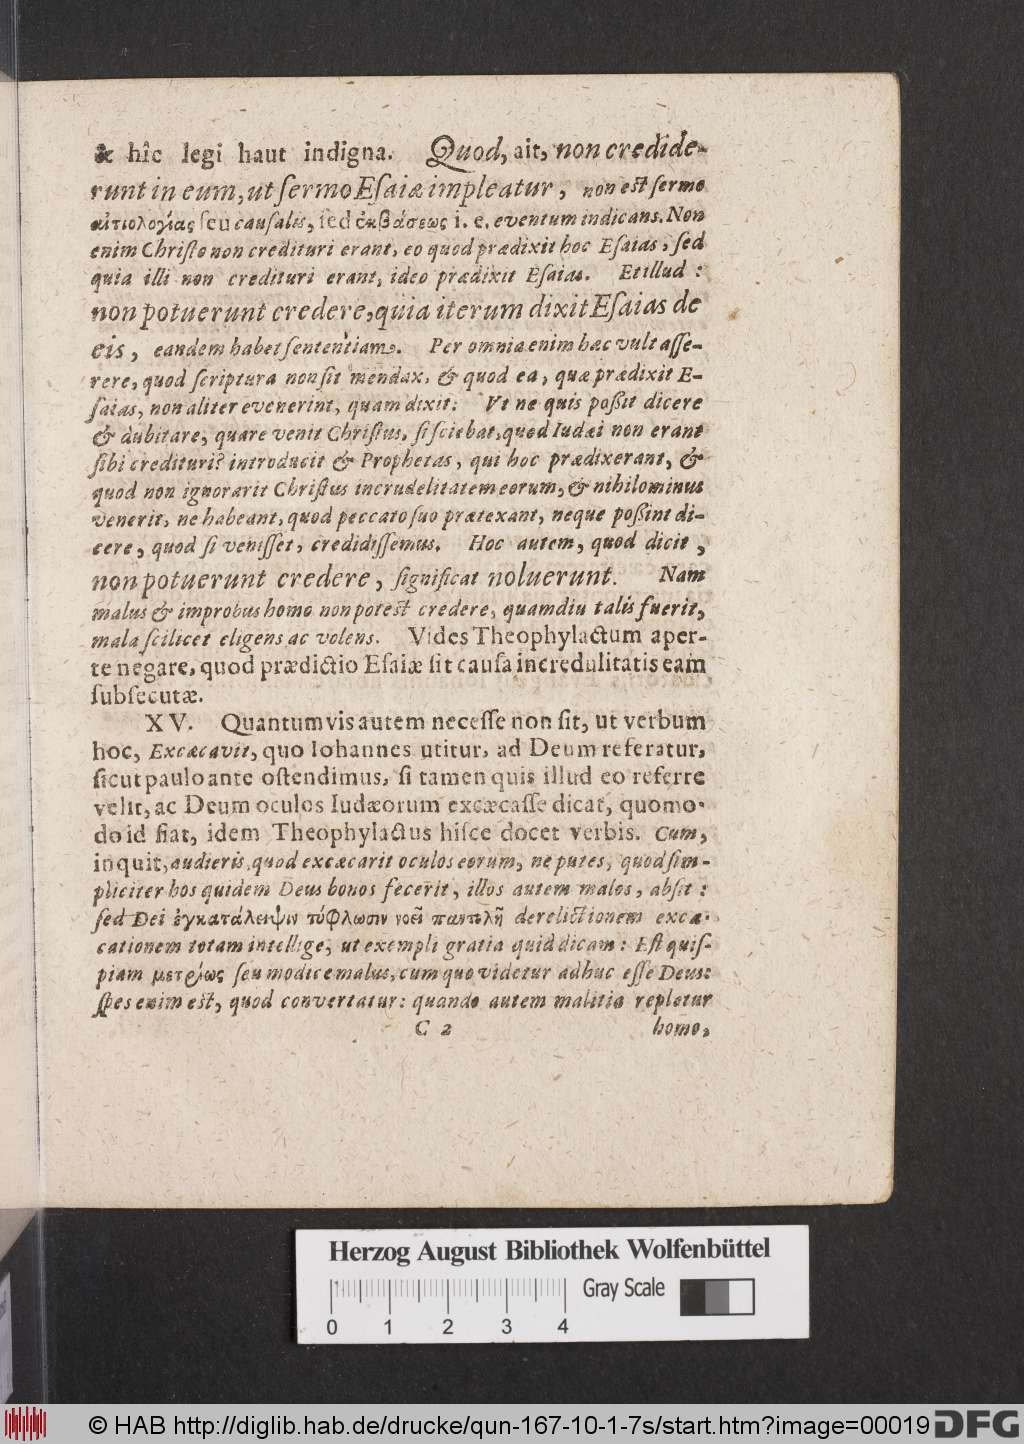 & hîc legi haut indigna. Quod, ait, non credide-
runt in eum, ut ſermo Eſaiæ impleatur, non est ſermo
αἰτιολογίας ſeu cauſalis, ſed ἐκβάσεως i. e. eventum indicans. Non
enim Chriſto non credituri erant, eo quod prædixit hoc Eſaias, ſed
quia illi non credituri erant, ideo prædixit Eſaias. Et illud:
non potuerunt credere, quia iterum dixit Eſaias de
eis, eandem habet ſententiam. Per omnia enim hæc vult aſſe-
rere, quod ſcriptura non ſit mendax, & quod ea, quæ prædixit E-
ſaias, non aliter evenerint, quam dixit: Ut ne quis poßit dicere
& dubitare, quare venit Chriſtus, ſi ſciebat, quod Iudæi non erant
ſibi credituri? introducit & Prophetas, qui hoc prædixerant, &
quod non ignorarit Chriſtus incrudelitatem eorum, & nihilominus
venerit, ne habeant, quod peccato ſuo prætexant, neque poßint di-
cere, quod ſi veniſſet, credidiſſemus. Hoc autem, quod dicit,
non potuerunt credere, ſignificat noluerunt. Nam
malus & improbus homo non potest credere, quamdiu talis fuerit,
mala ſcilicet eligens ac volens. Vides Theophylactum aper-
te negare, quod prædictio Eſaiæ ſit cauſa incredulitatis eam
ſubſecutæ.
XV. Quantumvis autem neceſſe non ſit, ut verbum
hoc, Excæcavit, quo Iohannes utitur, ad Deum referatur,
ſicut paulo ante oſtendimus, ſi tamen quis illud eo referre
velit, ac Deum oculos Iudæorum excæcaſſe dicat, quomo-
do id fiat, idem Theophylactus hiſce docet verbis. Cum,
inquit, audieris, quod excæcarit oculos eorum, ne putes, quod ſim-
pliciter hos quidem Deus bonos fecerit, illos autem malos, abſit:
ſed Dei ἐγκατάλειψιν τύφλωσιν νοεῖ παντελῆ derelictionem excæ-
cationem totam intellige, ut exempli gratia quid dicam: Eſt quiſ-
piam μετρίως ſeu modice malus, cum quo videtur adhuc eſſe Deus:
ſpes enim est, quod convertatur: quando autem malitia repletur
C 2 homo,
Herzog August Bibliothek Wolfenbüttel
Gray Scale
0 1 2 3 4
© HAB http://diglib.hab.de/drucke/qun-167-10-1-7s/start.htm?image=00019 DFG